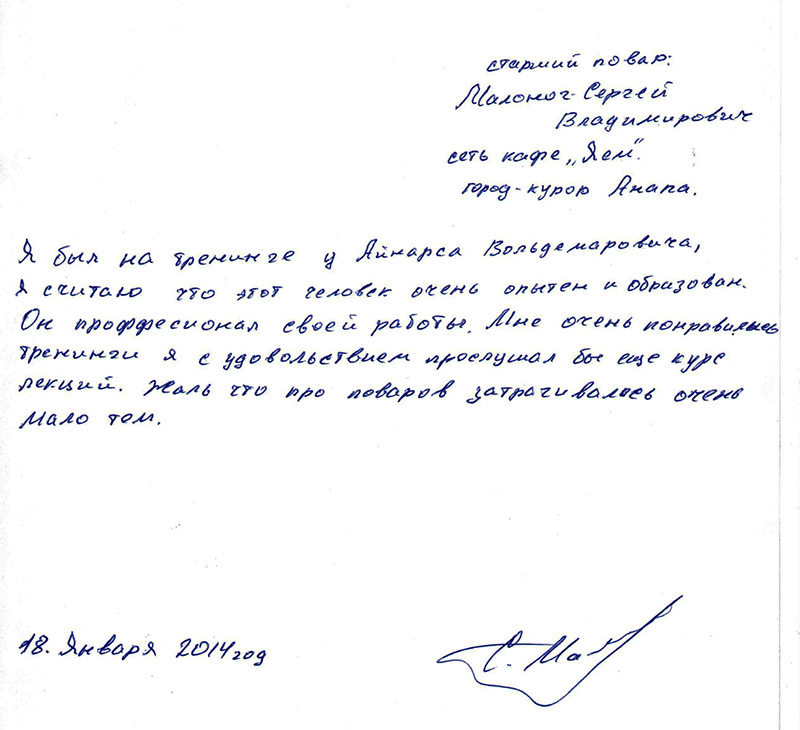 старший повар:
Малоног Сергей
Владимирович
сеть кафе „Я ем".
город-курор Анапа.
Я был на тренинге у Айнарса Вольдемаровича,
я считаю что этот человек очень опытен и образован.
Он проффесионал своей работы. Мне очень понравились
тренинги я с удовольствием прослушал бы еще курс
лекций. Жаль что про поваров затрагивалось очень
мало тем.
18. Января 2014 год
С. Мал